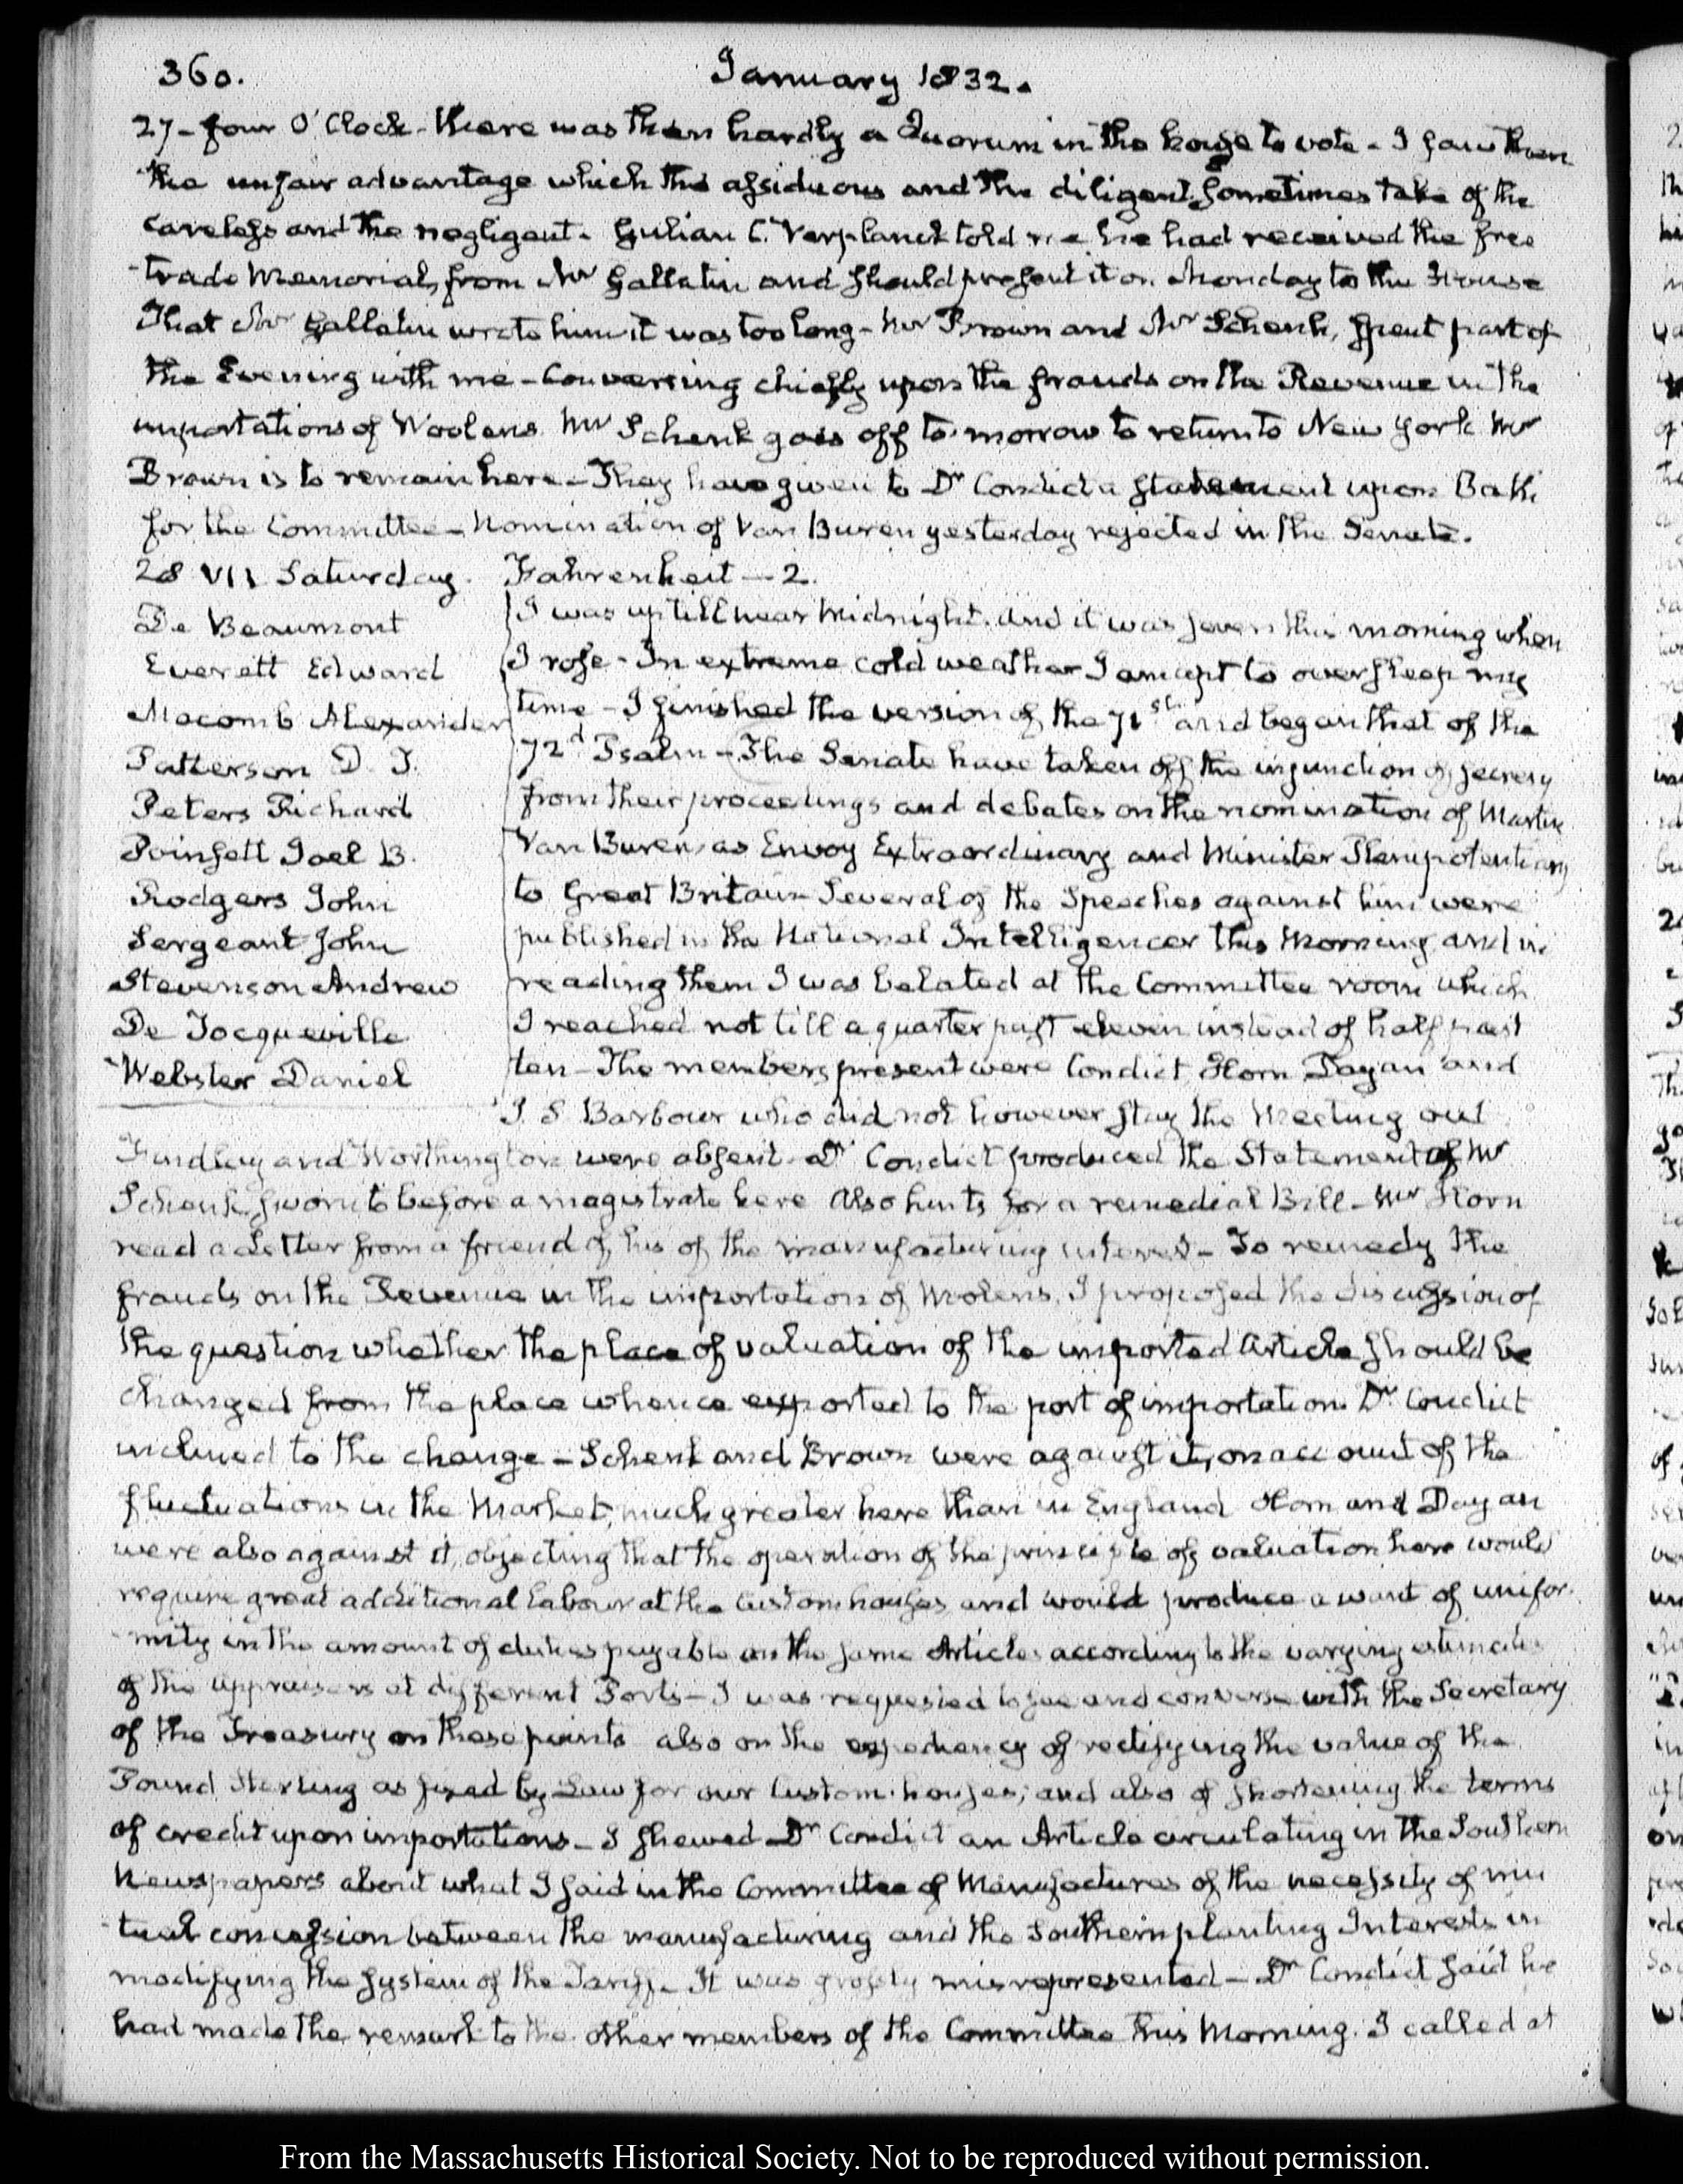 360.
January 1832.
27- four O'Clock- there was then hardly a Quorum in the house to vote - I saw then
the unfair advantage which the assiduous and the diligent sometimes take of the
careless and the negligent. Gulian C. Verplanck told me he had received the free
trade Memorial, from Mr Gallatin and should present it on Monday to the House
That Mr Gallatin wrote him it was too long - Mr Brown and Mr Schenk, spent part of
the Evening with me - Conversing chiefly upon the frauds on the Revenue in the
importations of Woolens. Mr Schenk goes off to-morrow to return to New York Mr
Brown is to remain here - They have given to Dr Condict a statement upon Oath
for the Committee - Nomination of Van Buren yesterday rejected in the Senate.
28 VII Saturday. Fahrenheit - 2.
De Beaumont
Everett Edward
Macomb Alexander
Patterson D. T.
Peters Richard
Poinsett Joel B.
Rodgers John
Sergeant John
Stevenson Andrew
De Tocqueville
Webster Daniel
I was up till near Midnight. and it was seven this morning when
I rose - In extreme cold weather I am apt to oversleep my
time - I finished the version of the 71st and began that of the
72d Psalm - The Senate have taken off the injunction of secrecy
from their proceedings and debates on the nomination of Martin
Van Buren, as Envoy Extraordinary and Minister Plenipotentiary
to Great Britain Several of the Speeches against him were
published in the National Intelligencer this Morning and in
reading them I was belated at the Committee room which
I reached not till a quarter past eleven instead of half past
ten - The members present were Condict, Horn Dayan and
J. S Barbour who did not however stay the Meeting out
Findlay and Worthington were absent. Dr Condict produced the Statement of Mr
Schenk, sworn to before a magistrate here Also hints for a remedial Bill - Mr Horn
read a Letter from a friend of his of the manufacturing interest - To remedy the
frauds on the Revenue in the importation of Wolens, I proposed the discussion of
the question whether the place of valuation of the imported Article should be
changed from the place whence exported to the port of importation. Dr Condict
inclined to the change - Schenk and Brown were against it, on account of the
fluctuations in the Market, much greater here than in England Horn and Dayan
were also against it, objecting that the operation of the principle of valuation here would
require great additional labour at the Custom houses, and would produce a want of unifor-
mity in the amount of duties payable on the same Article according to the varying estimates
of the appraisers at different Ports - I was requested to see and converse with the Secretary
of the Treasury on these points also on the expediency of rectifying the value of the
Pound Sterling as fixed by Law for our Custom-houses; and also of shortening the terms
of credit upon importations - I shewed Dr Condict an Article circulating in the Southern
Newspapers about what I said in the Committee of Manufactures of the necessity of mu
tual concession between the manufacturing and the Southern planting Interests in
modifying the system of the Tariff - It was grossly misrepresented - Dr Condict said he
had made the remark to the other members of the Committee this Morning. I called at
From the Massachusetts Historical Society. Not to be reproduced without permission.